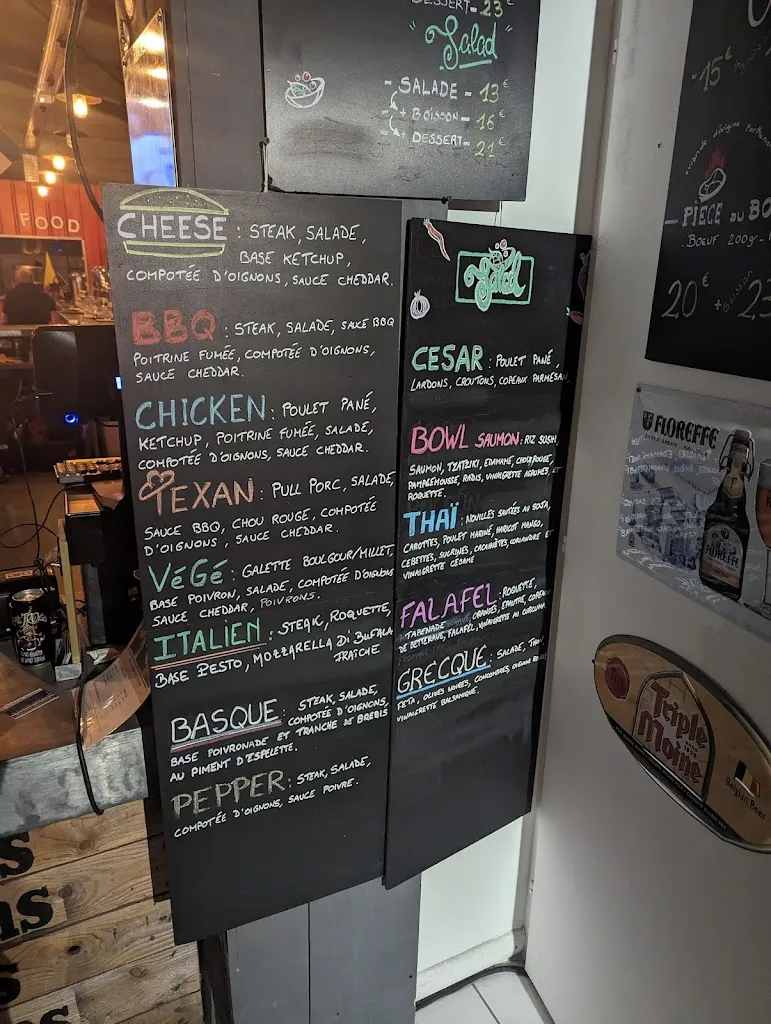 DESSERT - 23€
Salad
- SALADE - 13€
+ BOISSON - 16€
+ DESSERT - 21€
FOOD
CHEESE : STEAK, SALADE,
BASE KETCHUP,
COMPOTÉE D'OIGNONS, SAUCE CHEDDAR.
BBQ : STEAK, SALADE, SAUCE BBQ
POITRINE FUMÉE, COMPOTÉE D'OIGNONS,
SAUCE CHEDDAR.
CHICKEN : POULET PANÉ,
KETCHUP, POITRINE FUMÉE, SALADE,
COMPOTÉE D'OIGNONS, SAUCE CHEDDAR.
TEXAN : PULL PORC, SALADE,
SAUCE BBQ, CHOU ROUGE, COMPOTÉE
D'OIGNONS, SAUCE CHEDDAR.
VéGé : GALETTE BOULGOUR/MILLET,
BASE POIVRON, SALADE, COMPOTÉE D'OIGNONS
SAUCE CHEDDAR, POIVRONS.
ITALIEN : STEAK, ROQUETTE,
BASE PESTO, MOZZARELLA DI BUFALA
FRAÎCHE
BASQUE : STEAK, SALADE,
COMPOTÉE D'OIGNONS,
BASE POIVRONADE ET TRANCHE DE BREBIS
AU PIMENT D'ESPELETTE.
PEPPER : STEAK, SALADE,
COMPOTÉE D'OIGNONS, SAUCE POIVRE.
Salad
CESAR : POULET PANÉ,
LARDONS, CROUTONS, COPEAUX PARMESAN
BOWL SAUMON : RIZ SUSHI,
SAUMON, TZATZIKI, EDAMAMÉ, CHOUX ROUGE,
PAMPLEMOUSSE, RADIS, VINAIGRETTE AGRUMES ET
ROQUETTE.
THAÏ : NOUILLES SAUTÉES AU SOJA,
CAROTTES, POULET MARINÉ, HARICOT MANGO,
CEBETTES, SUCRINES, CACAHUÈTES, CORIANDRE ET
VINAIGRETTE SÉSAME
FALAFEL : ROQUETTE,
TAPENADE ORANGES, EPAUTRE, COPEAUX
DE BETTERAVE, FALAFEL, VINAIGRETTE AU CURCUMA
GRECQUE : SALADE, THON,
FETA, OLIVES NOIRES, CONCOMBRES,
VINAIGRETTE BALSAMIQUE.
- 15€
viande d'origine
- PIÈCE DU BO
BOEUF 200gr
20€ + Boisson 23
FLOREFFE
FLOREFFE
Triple
Moine
Belgian Beer
as